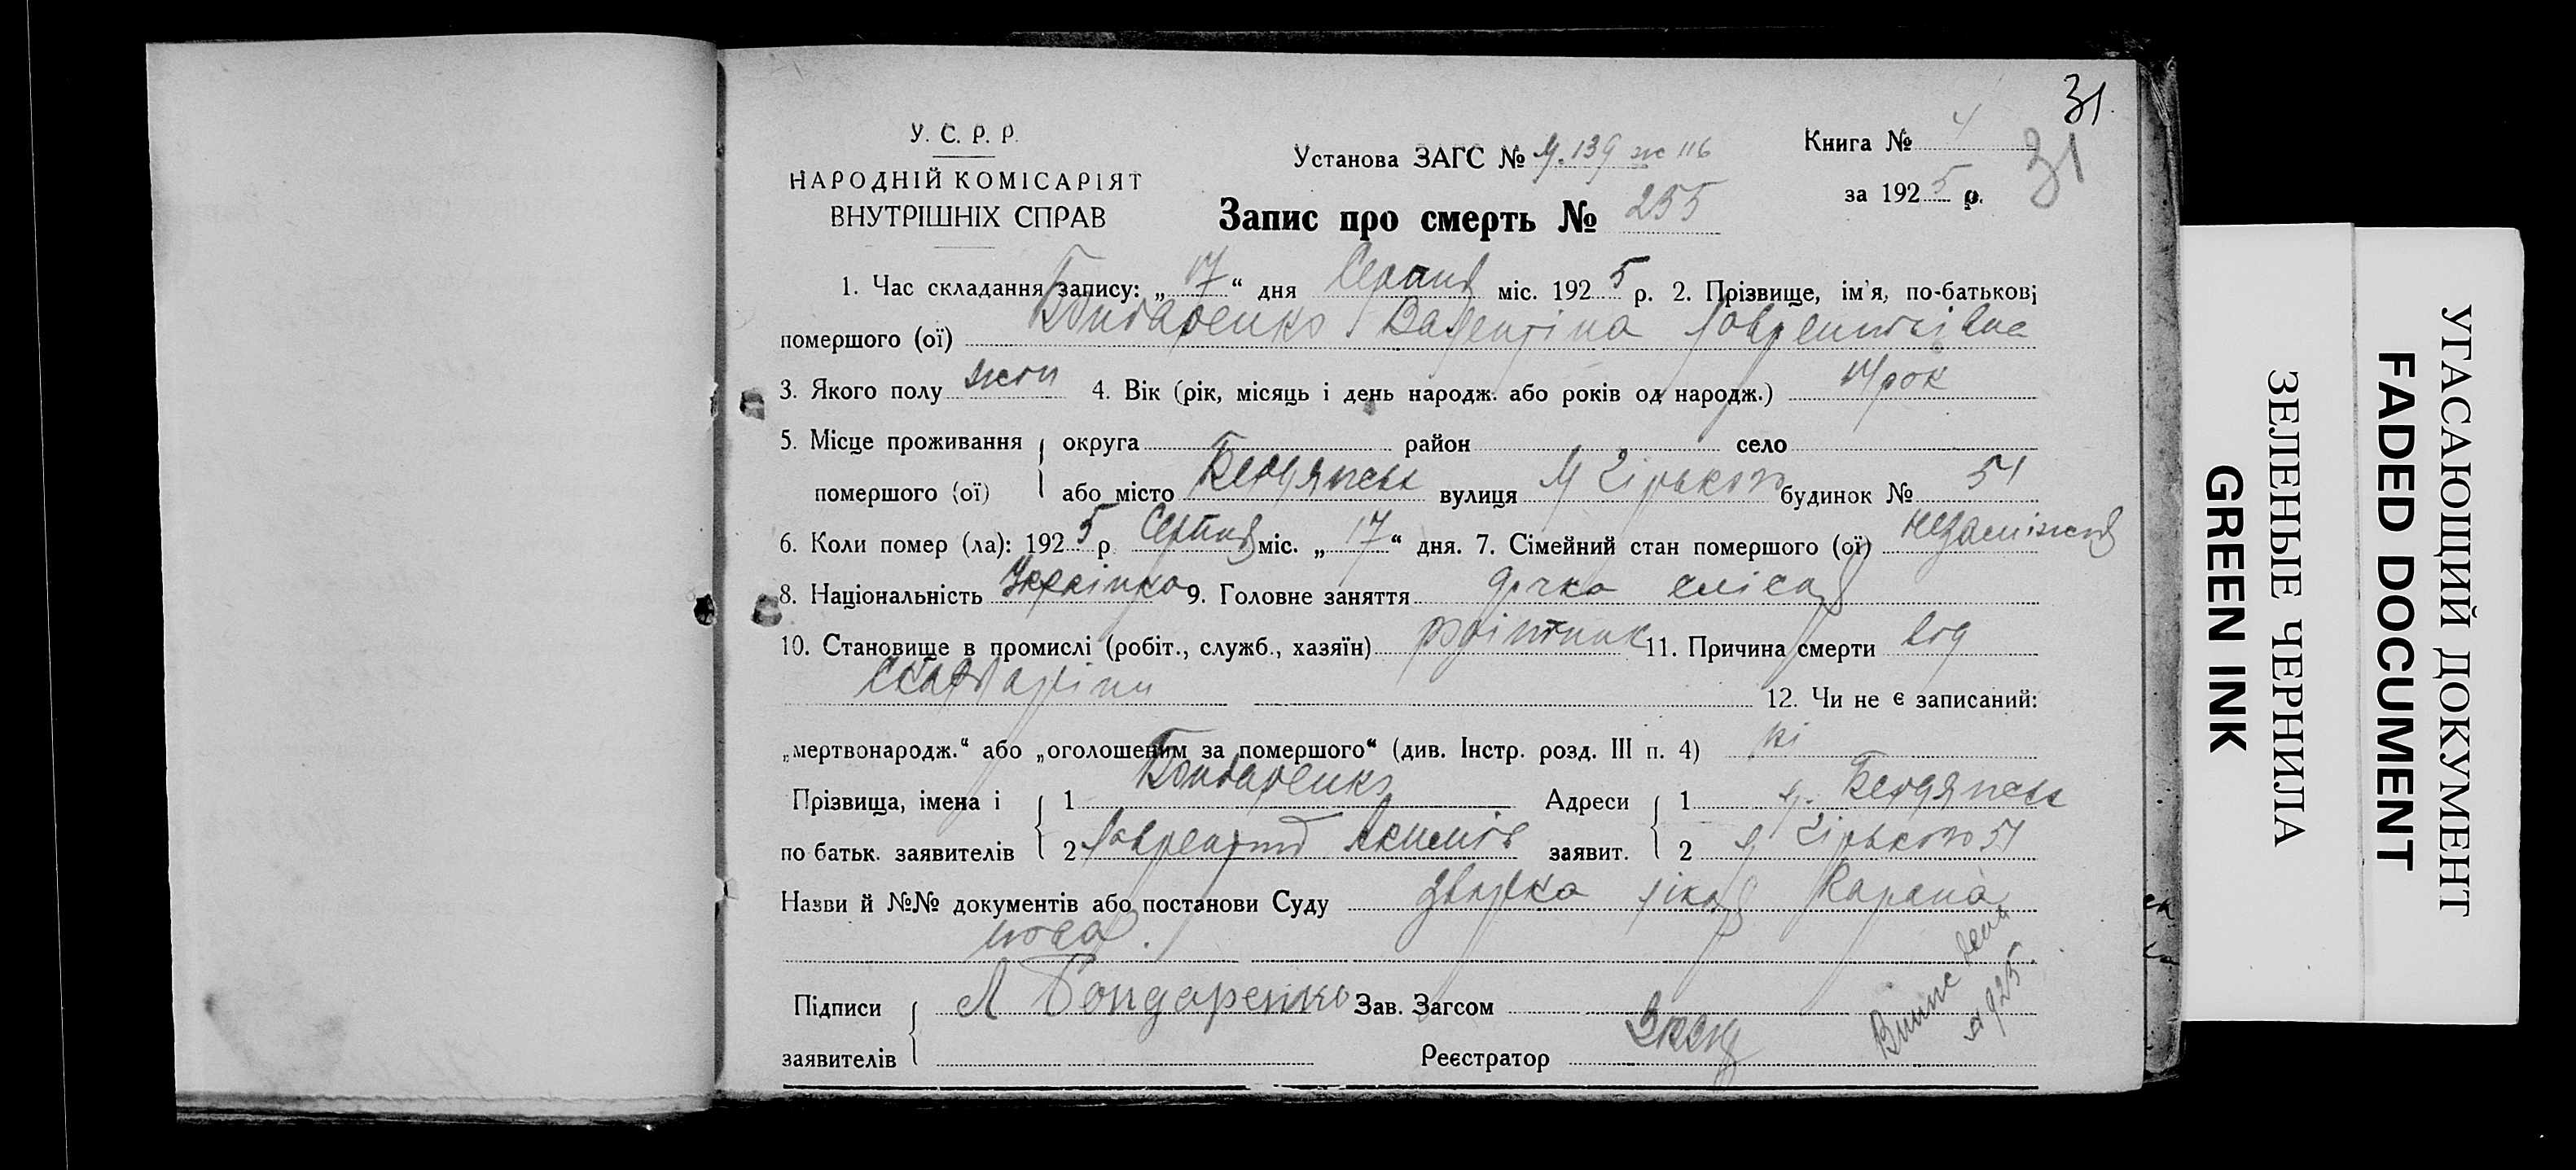 31
31
У. С. Р. Р.
НАРОДНІЙ КОМІСАРІЯТ
ВНУТРІШНІХ СПРАВ
Установа ЗАГС № М. 139 ж 116
Книга № 4
за 1925 р.
Запис про смерть № 255
1. Час складання запису: „17“ дня Серпня міс. 1925 р. 2. Прізвище, ім'я, по-батькові
помершого (ої) Бондаренко Валентіна Лаврентіівна
3. Якого полу жон 4. Вік (рік, місяць і день народж. або років од народж.) рок
5. Місце проживання округа район село
помершого (ої) або місто Бердянськ вулиця М Гірького будинок № 51
6. Коли помер (ла): 1925 р. Серпня міс. „17“ дня. 7. Сімейний стан помершого (ої) незаміжня
8. Національність Українка 9. Головне заняття дочка слісаря
10. Становище в промислі (робіт., служб., хазяїн) робітник 11. Причина смерти від
скарлатіни 12. Чи не є записаний:
„мертвонародж.“ або „оголошеним за помершого“ (див. Інстр. розд. III п. 4) ні
Прізвища, імена і 1 Бондаренко Адреси 1 м. Бердянськ
по батьк. заявителів 2 Лаврентій заявит. 2 Гірького 51
Назви й №№ документів або постанови Суду лікаря
Підписи Л Бондаренко Зав. Загсом
заявителів Реєстратор
1925
УГАСАЮЩИЙ ДОКУМЕНТ
FADED DOCUMENT
ЗЕЛЕНЫЕ ЧЕРНИЛА
GREEN INK